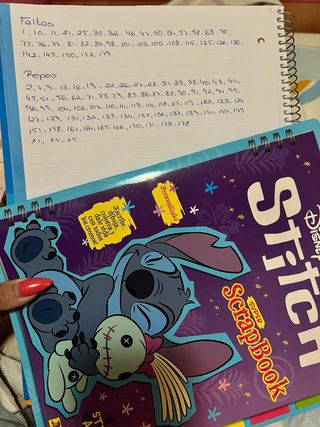 Faltas
1, 10, 11, 21, 25, 30, 32, 46, 47, 50, 54, 57, 58, 63, 70,
75, 76, 77, 81, 82, 84, 98, 101, 103, 105, 108, 115, 125, 126, 130,
142, 145, 150, 172, 179
Repes
2, 7, 9, 13, 16, 19, 24, 26, 27, 28, 31, 33, 38, 40, 43, 44,
45, 51, 56, 62, 71, 73, 79, 83, 86, 87, 88, 90, 91, 92, 94, 95,
96, 99, 104, 106, 107, 110, 111, 113, 114, 118, 117, 119, 122, 123, 124
127, 129, 131, 132, 133, 134, 135, 136, 137, 139, 141, 147, 149
151, 158, 161, 164, 165, 166, 170, 171, 173, 178
X1, X4, X5
Disney
Stitch
SUPER
SCRAPBOOK
¡Personalízalo!
¡Escribe,
dibuja,
colorea y
dale vida
con todos
los cromos!